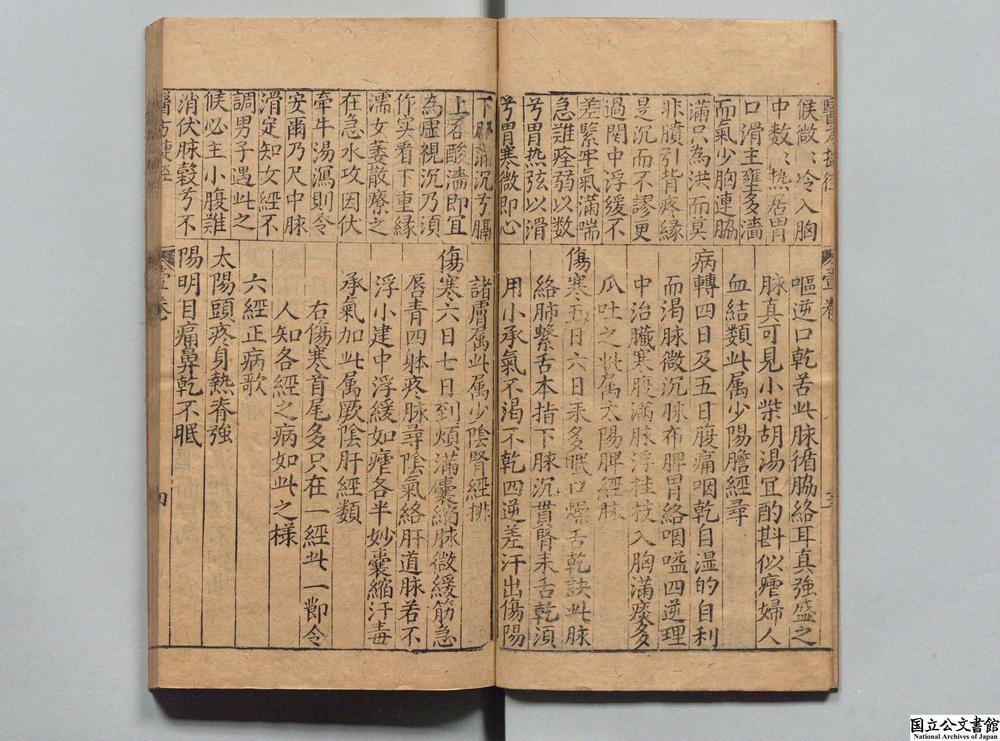 候微〻冷入胸
中数〻热居胃
口滑主壅多濇
而氣少胸連脇
滿只為洪而莫
非膹引背疼縁
是沉而不謬更
過関中浮緩不
差緊牢氣滿喘
急誰痊弱以数
兮胃热弦以滑
兮胃寒微即心
嘔逆口乾苦此脉循脇絡耳真強盛之
脉真可見小柴胡湯冝酌斟似瘧婦人
血結類此属少陽膽經尋
病轉四日及五日腹痛咽乾自湿的自利
而渴脉微沉脉布脾胃絡咽嗌四逆理
中治臟寒腹滿脉浮桂枝入胸滿痰多
瓜吐之此属太陽脾經脉
傷寒五日六日来多眠口燥舌乾訣此脉
絡肺繫舌本指下脉沉貫腎来舌乾須
用小承氣不渴不乾四逆差汗出傷陽
壹卷
下脉滿沉兮膈
上吞酸濇即冝
為虚視沉乃須
作实看下重縁
濡女萎散療之
在急水攻因伏
牽牛湯瀉則令
安爾乃尺中脉
滑定知女經不
調男子遇此之
候必主小腹難
消伏脉穀兮不
諸膚属此属少陰腎經排
傷寒六日七日到煩滿囊縮脉微緩筋急
唇青四躰疼脉尋陰氣絡肝道脉若不
浮小建中浮緩如瘧各半妙囊縮汗毒
承氣加此属厥陰肝經類
右傷寒首尾多只在一經此一鄣令
人知各經之病如此之樣
六經正病歌
太陽頭疼身熱脊強
陽明目痛鼻乾不眠
醫方捷徑
壹卷
四
国立公文書館
National Archives of Japan